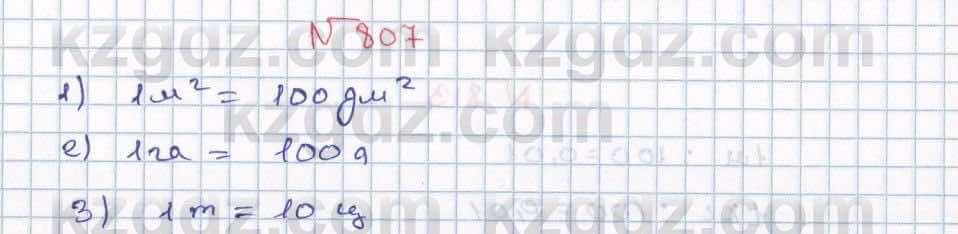 № 807
1) 1 м² = 100 дм²
2) 1 га = 100 а
3) 1 т = 10 ц
kzgdz.com kzgdz.com
kzgdz.com
kzgdz.com kzgdz.com